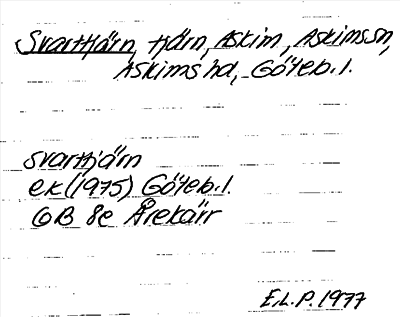 Svarttjärn, tjärn, Askim, Askims sn,
Askims hd, Göteb. l.
svartjärn
ek (1975) Göteb. l.
6B 8e Årekärr
E.L.P. 1977